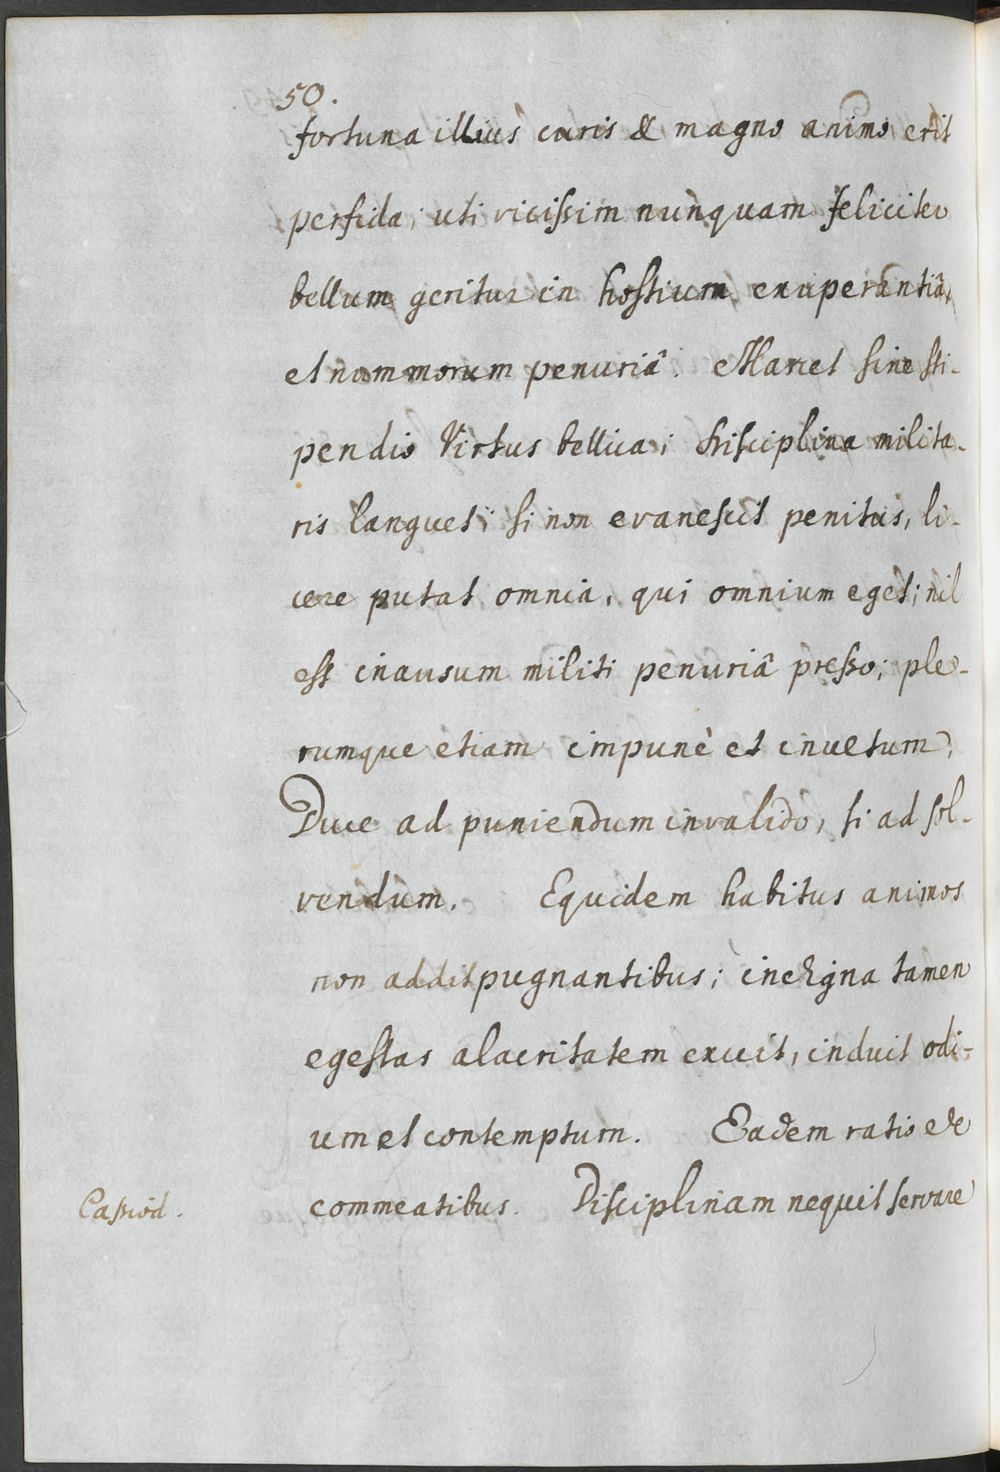 50.
fortuna illius curis & magno animo erit
perfida; uti vicissim nunquam feliciter
bellum geritur in hostium exuperantiâ,
et nummorum penuriâ. Marcet sine sti-
pendio Virtus bellica; disciplina milita-
ris languet; si non evanescit penitus, li-
cere putat omnia, qui omnium eget; nil
est inausum militi penuriâ presso; ple-
rumque etiam impunè et inultum,
Duce ad puniendum invalido, si ad sol-
vendum. Equidem habitus animos
non addit pugnantibus; indigna tamen
egestas alacritatem exuit, induit odi-
um et contemptum. Eadem ratio de
Cassiod. commeatibus. Disciplinam nequit servare